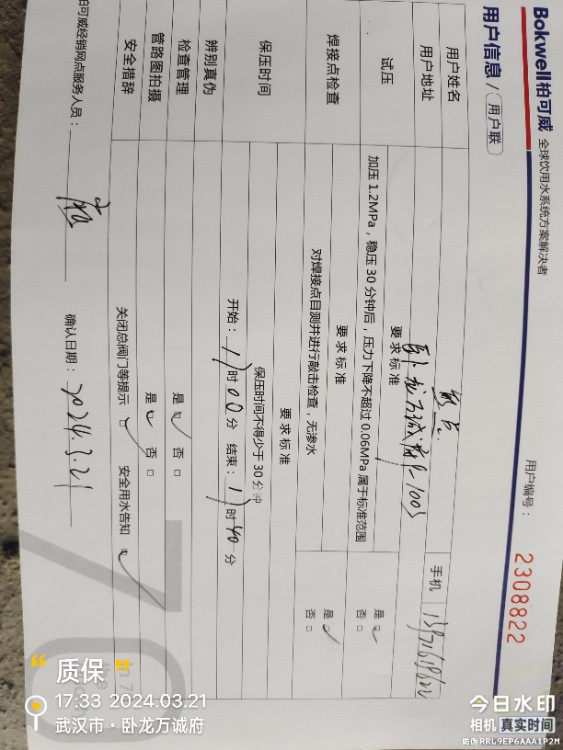 Bokwell柏可威 全球饮用水系统方案解决者
用户编号： 2308822
用户信息 / 用户联
用户姓名
手机
用户地址 卧龙万诚府
试压
要求标准
加压 1.2MPa，稳压 30 分钟后，压力下降不超过 0.06MPa 属于标准范围
是 否
焊接点检查
要求标准
对焊接点目测并进行敲击检查，无渗水
是 否
保压时间
要求标准
保压时间不得少于 30 分钟
开始： 17 时 00 分 结束： 17 时 40 分
辨别真伪
检查管理
是 否
管路图拍摄
是 否
安全措辞
关闭总阀门等提示 安全用水告知
柏可威经销网点服务人员：
确认日期： 2024.3.21
质保
17:33 2024.03.21
武汉市·卧龙万诚府
今日水印
相机 真实时间
防伪 RRL9EP6AAA1P2M